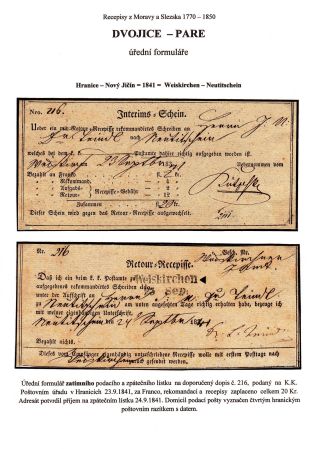 Recepisy z Moravy a Slezska 1770 – 1850
DVOJICE – PARE
úřední formuláře
Hranice – Nový Jičín = 1841 = Weiskirchen – Neutitschein
Nro. 216.
Interims-Schein.
Ueber ein mit Retour-Recepisse rekommandirtes Schreiben an Herrn J. N.
Teindl nach Neutitschein
welches bei dem k. k. Postamte dahier richtig aufgegeben worden ist.
Weiskirchen 23 Septbr
Bezahlt an Franko kr. Uebernommen vom
" Rekommand. "
" Aufgabs- "
" Retour- Recepisse-Gebühr " 12 "
Zusammen 20 kr.
Dieser Schein wird gegen das Retour-Recepisse ausgewechselt.
Nr. 216
Retour-Recepisse.
Daß ich ein beim k. k. Postamte zu Weiskirchen
aufgegebenes rekommandirtes Schreiben 23 SEP.
unter der Aufschrift an Herrn J. N. Teindl
zu Neutitschein am unten angesetzten Tage richtig erhalten habe, bezeuge ich
mit meiner eigenhändigen Unterschrift.
Neutitschein den 24 Septbr 1841
Bezahlt nichts.
Dieses vom Empfänger eigenhändig unterschriebene Recepisse wolle mit erstem Posttage nach
Weiskirchen
Úřední formulář zatimního podacího a zpátečního lístku na doporučený dopis č. 216, podaný na K.K.
Poštovním úřadu v Hranicích 23.9.1841, za Franco, rekomandaci a recepisy zaplaceno celkem 20 Kr.
Adresát potvrdil příjem na zpátečním lístku 24.9.1841. Domicil podací pošty vyznačen čtvrtým hranickým
poštovním razítkem s datem.